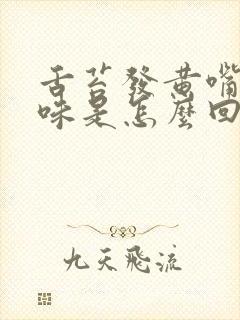 舌苔發黄嘴
味是怎麼回
九天飛流